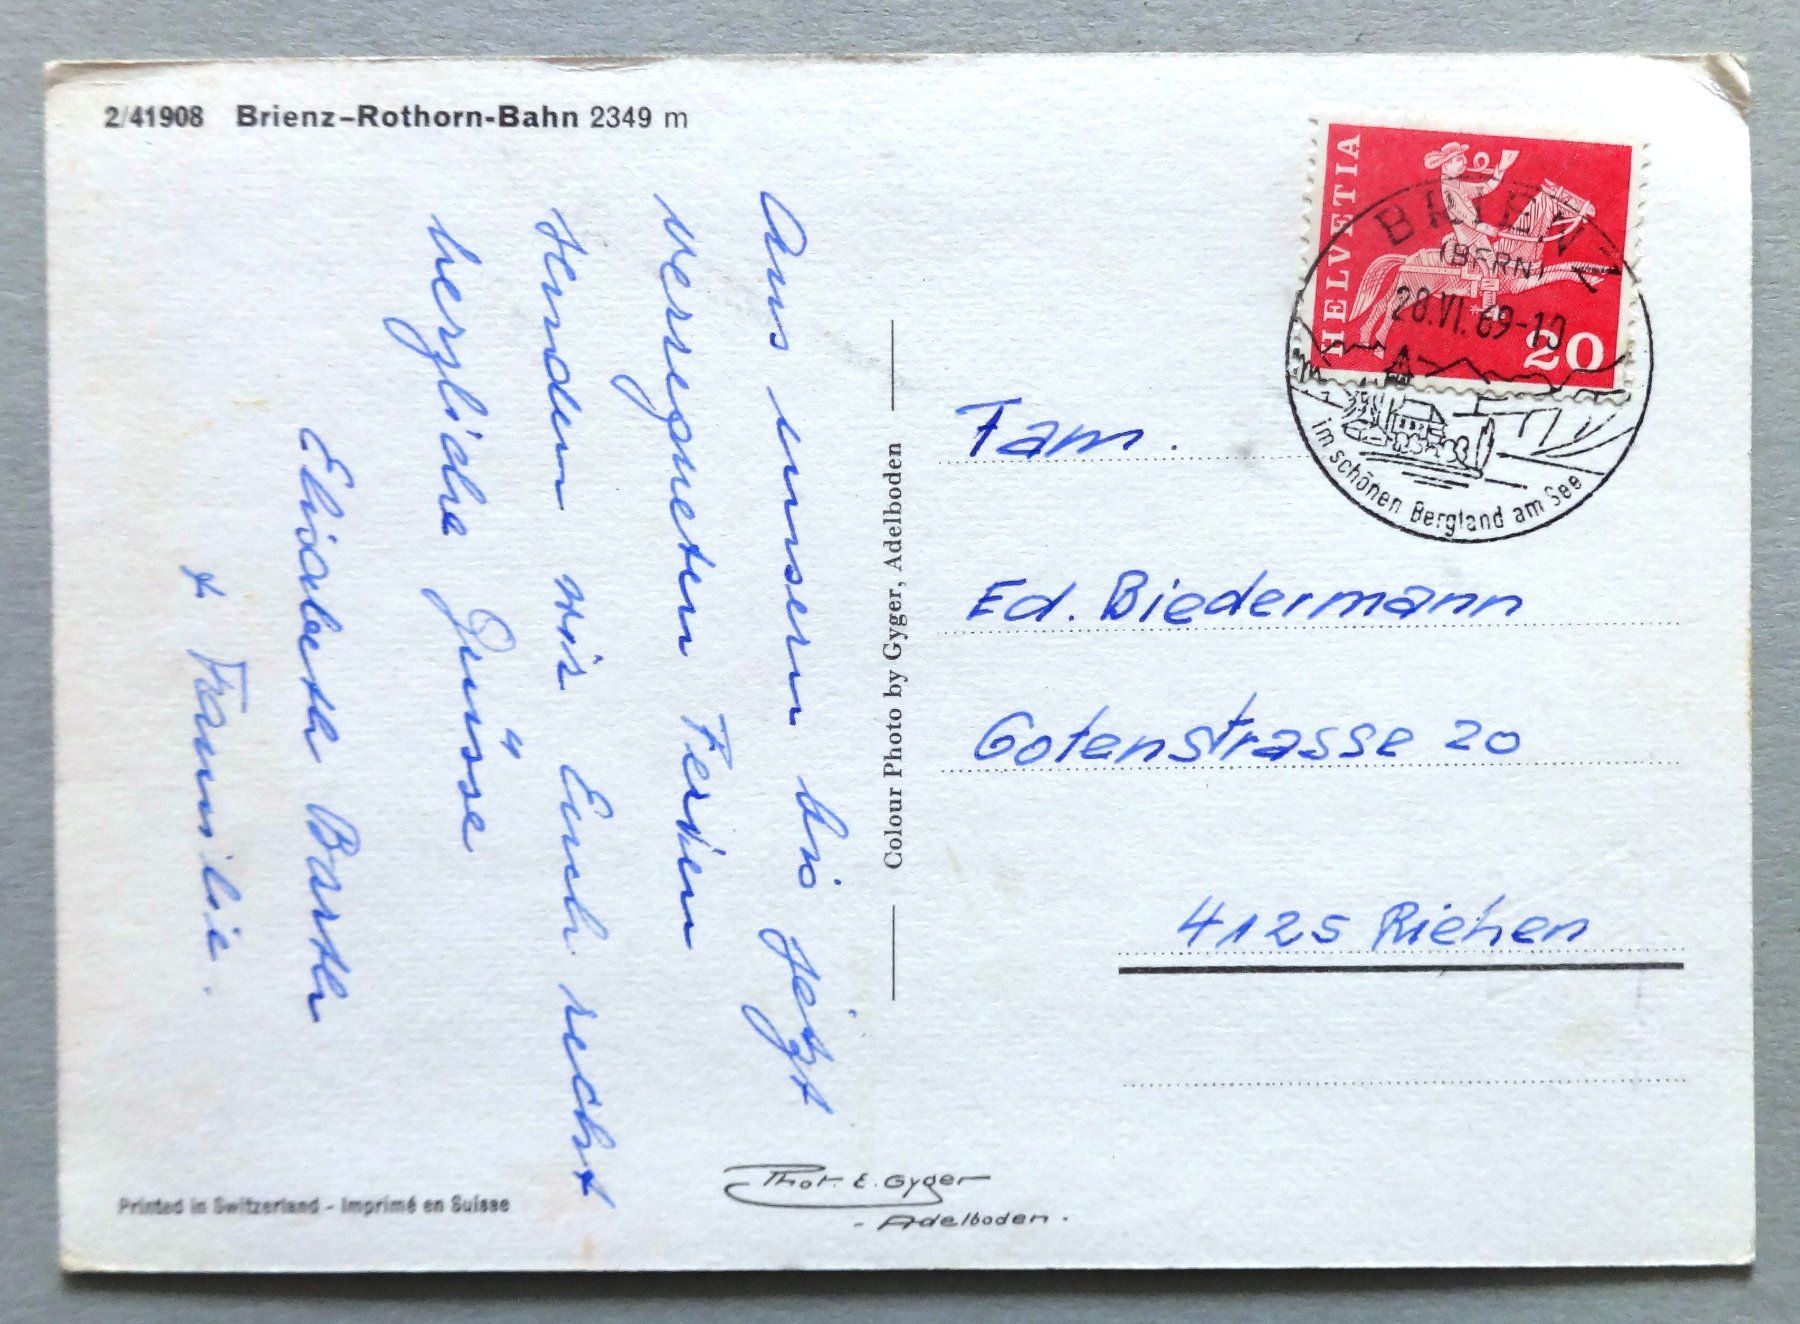 2/41908 Brienz–Rothorn-Bahn 2349 m
Aus unsern bis jetzt
verregneten Ferien
senden wir Euch recht
herzliche Grüsse
Elisabeth
+ Familie.
Colour Photo by Gyger, Adelboden
HELVETIA
20
BRIENZ
(BERN)
28.VI.69-10
im schönen Bergland am See
Fam.
Ed. Biedermann
Gotenstrasse 20
4125 Riehen
Printed in Switzerland - Imprimé en Suisse
Phot. E. Gyger
- Adelboden.